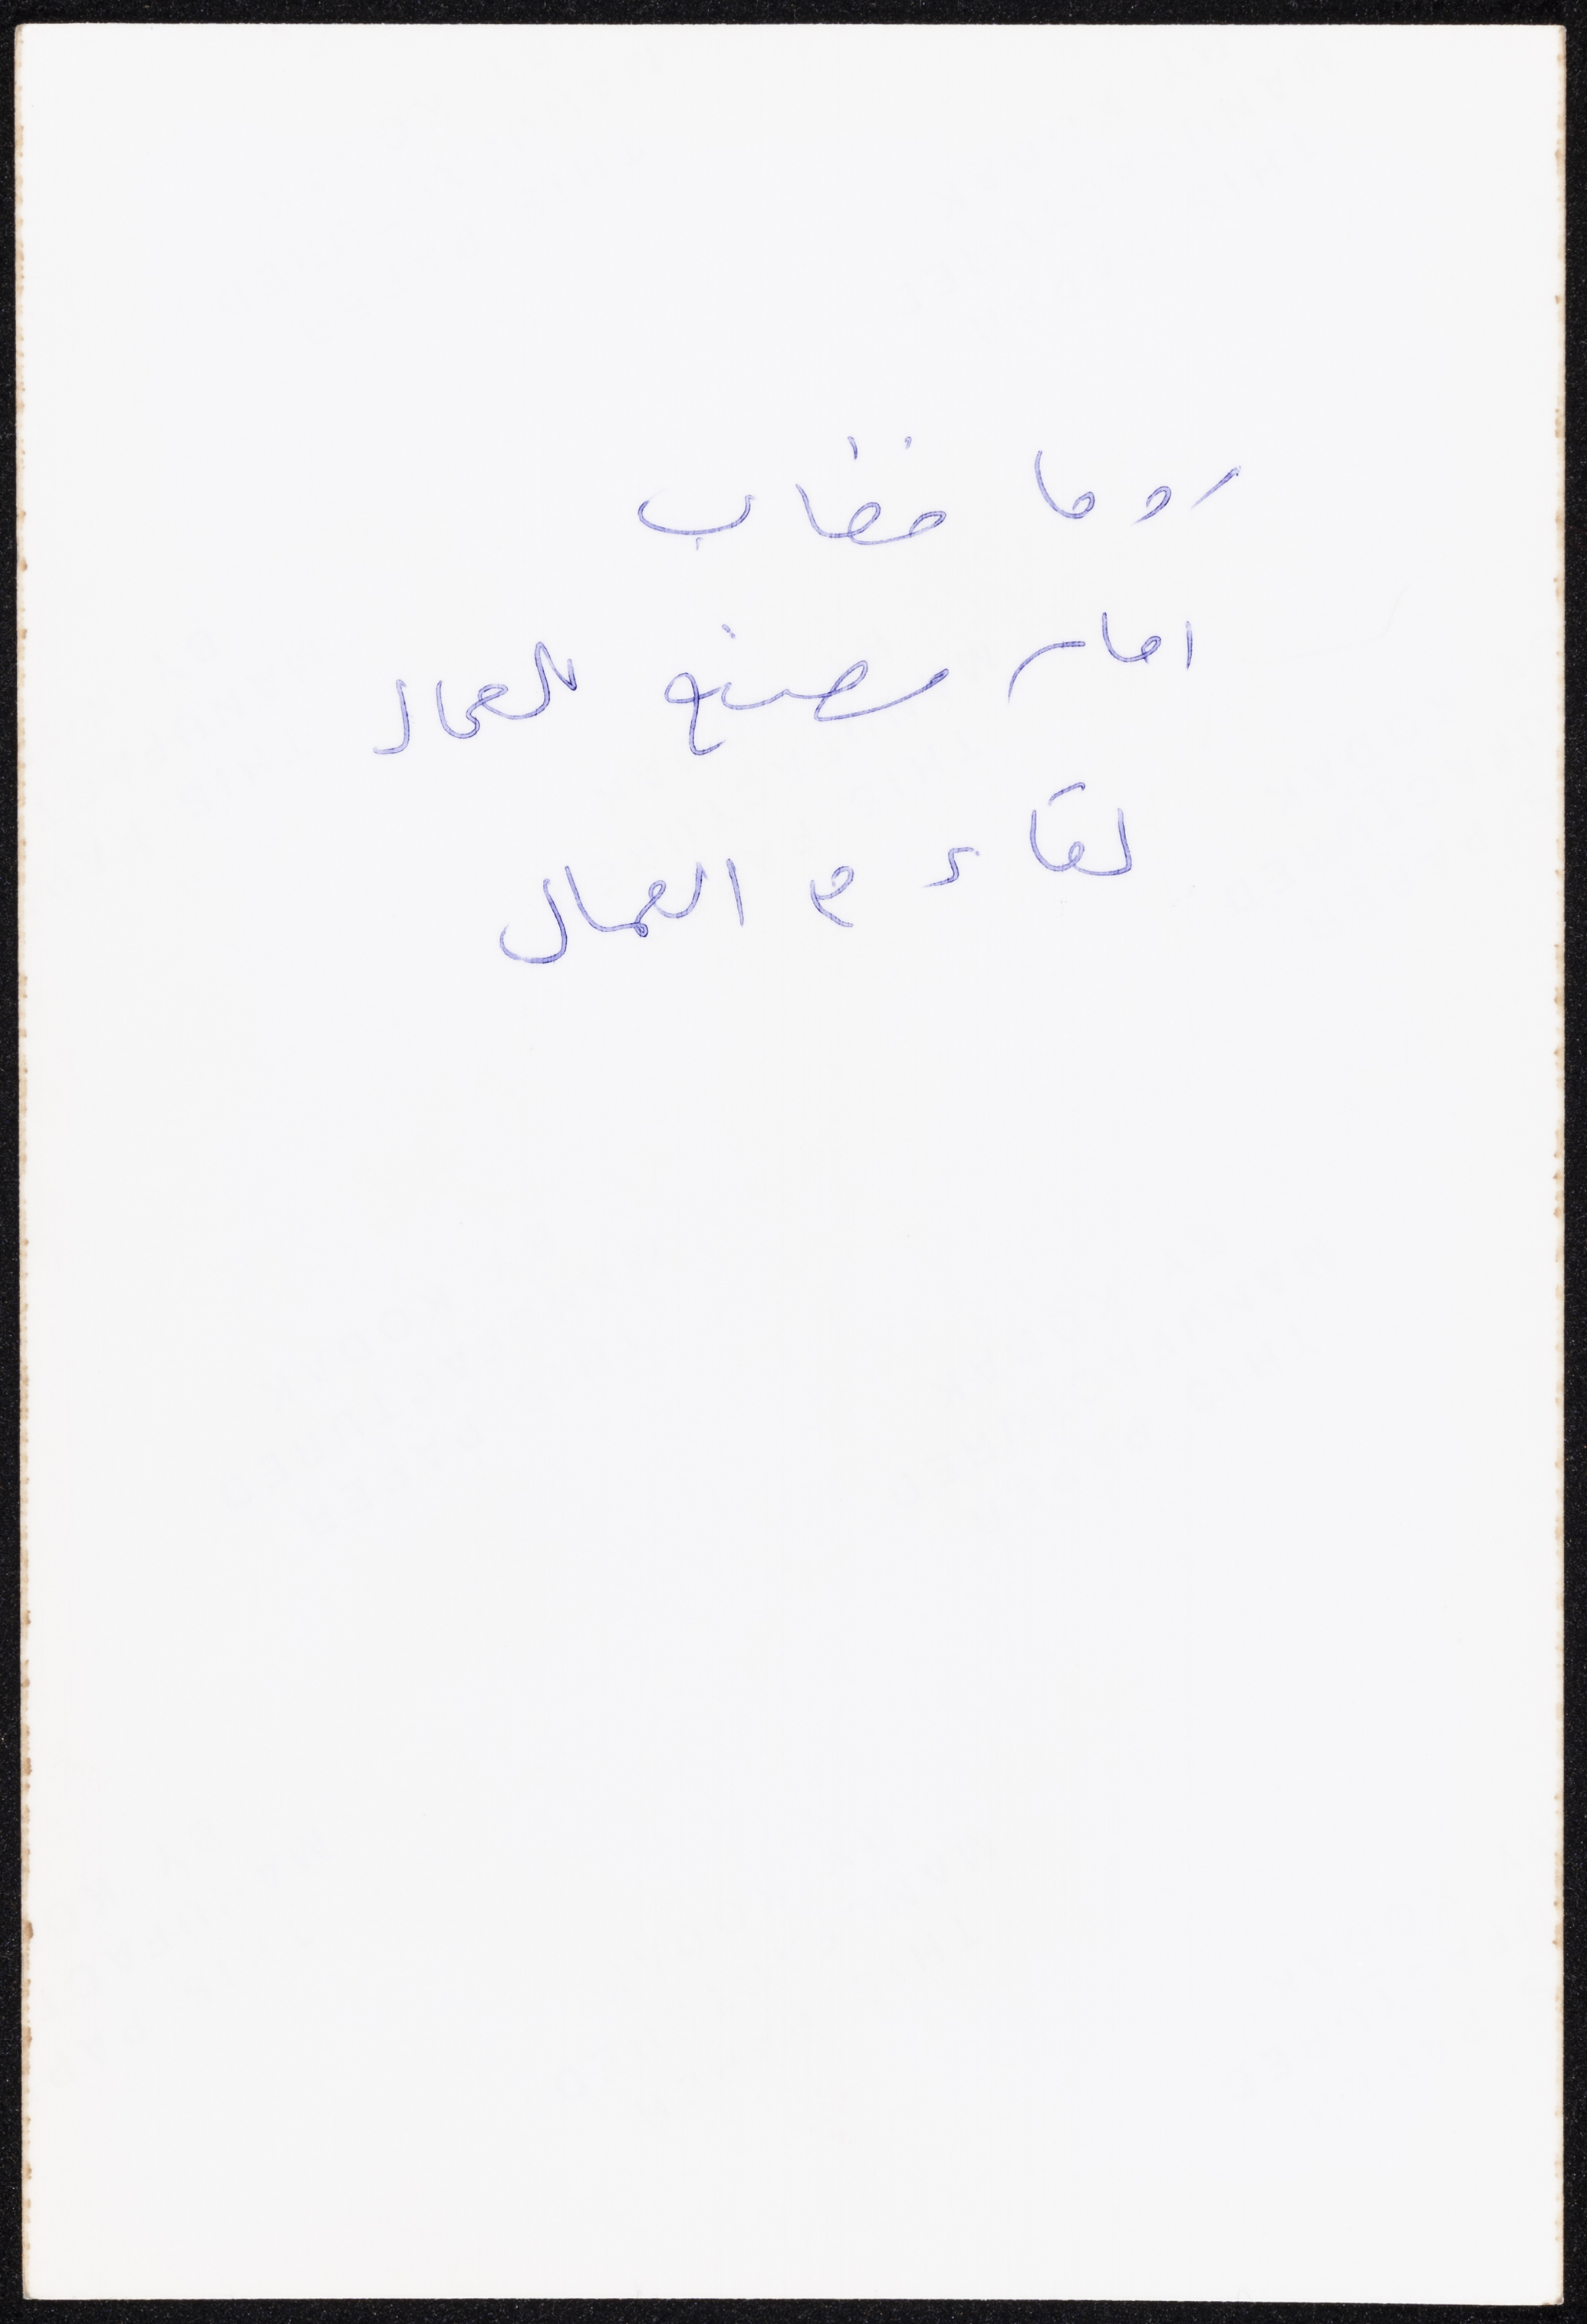 روما خضاب
امام مصنع للعمال
لقاء مع العمال